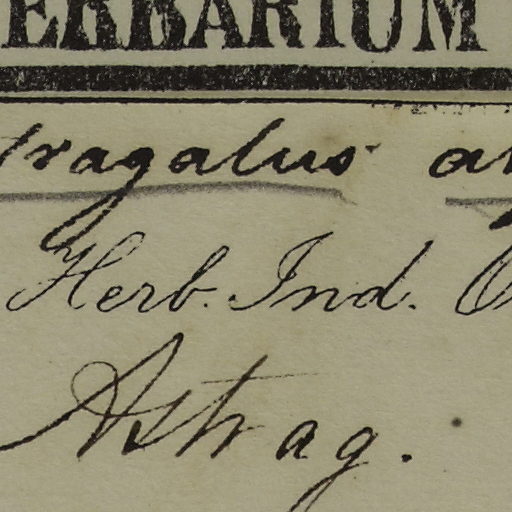 ERBARIUM
tragalus a
Herb. Ind. O
Astrag.